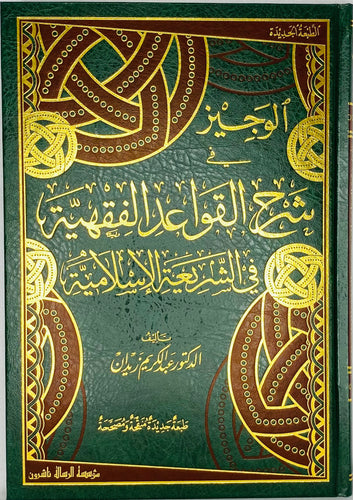 الطبعة الجديدة
الوجيز
في
شرح القواعد الفقهية
في الشريعة الإسلامية
تأليف
الدكتور عبد الكريم زيدان
طبعة جديدة منقحة ومصححة
مؤسسة الرسالة ناشرون